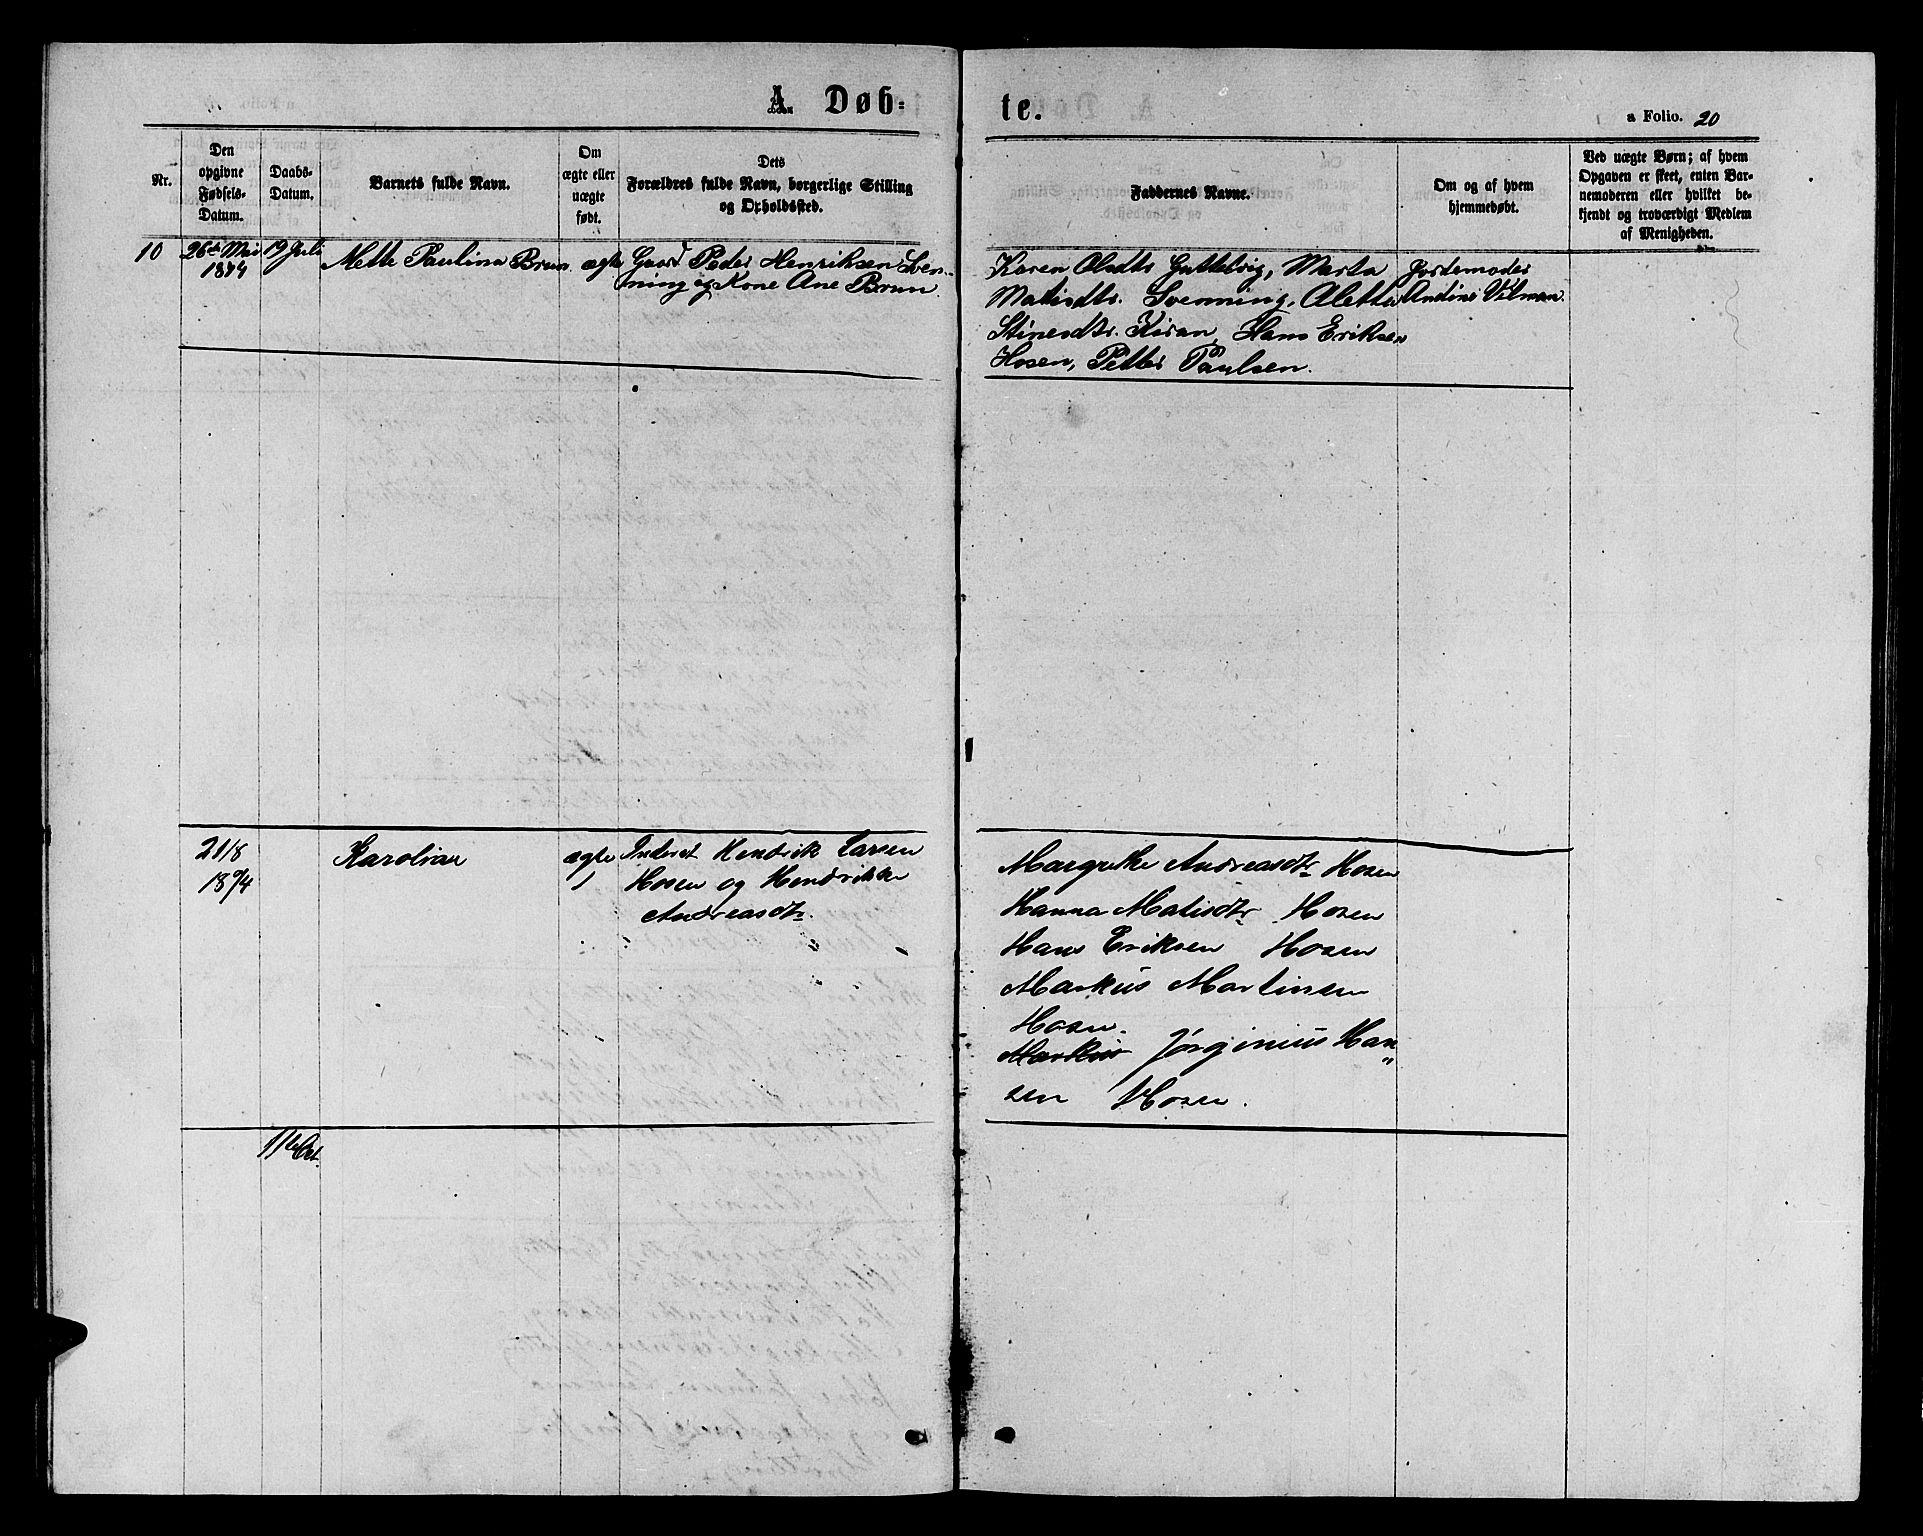 A. Døb-
te.
a Folio. 20
Nr.
Den
opgivne
Fødsels-
Datum.
Daabs-
Datum.
Barnets fulde Navn.
Om
ægte eller
uægte
født.
Dets
Forældres fulde Navn, borgerlige Stilling
og Opholdssted.
Faddernes Navne.
Om og af hvem
hjemmedøbt.
Ved uægte Børn; af hvem
Opgaven er skeet, enten Bar-
nemoderen eller hvilket be-
kjendt og troværdigt Medlem
af Menigheden.
10
26de Mai
1874
19 Juli
Mette Paulina Brun
ægte
Gaard Peder Henriksen Sven-
ning og Kone Ane Brun
Karen Olsdtr Guttelvig, Marta
Matisdtr. Svenning, Aletta
Stinesdtr. Kiran, Hans Eriksen
Hosen, Petter Paulsen.
Jordemoder
Andine Vilman
21/8
1874
Karolina
ægte
Inderst Hendrik Larsen
Hosen og Hendrikke
Andreasdtr.
Margrethe Andreasdtr Hosen
Hanna Matisdtr Hosen
Hans Eriksen Hosen
Markus Martinsen
Hosen.
Markus Jørginius Han„
sen Hosen.
11te Oct.